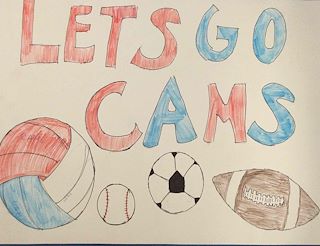 LETS GO
CAMS